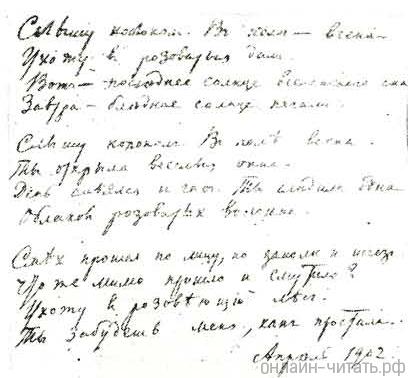 Слышу колоколъ. Въ полѣ – весна.
Ухожу въ розоватыя дали.
Вотъ – последнее солнце весенняго сна
Завтра – блѣдное солнце печали.
Слышу колоколъ. Въ полѣ весна.
Ты открыла веселыя окна.
День смѣялся и гасъ. Ты слѣдила одна
Облаковъ розоватыхъ волокна.
Смѣхъ прошелъ по лицу, но замолкъ и исчезъ
Что же мимо прошло и смутило?
Ухожу въ розовѣющій лѣсъ.
Ты забудешь меня, какъ простила.
Апрѣль 1902
онлайн-читать.рф